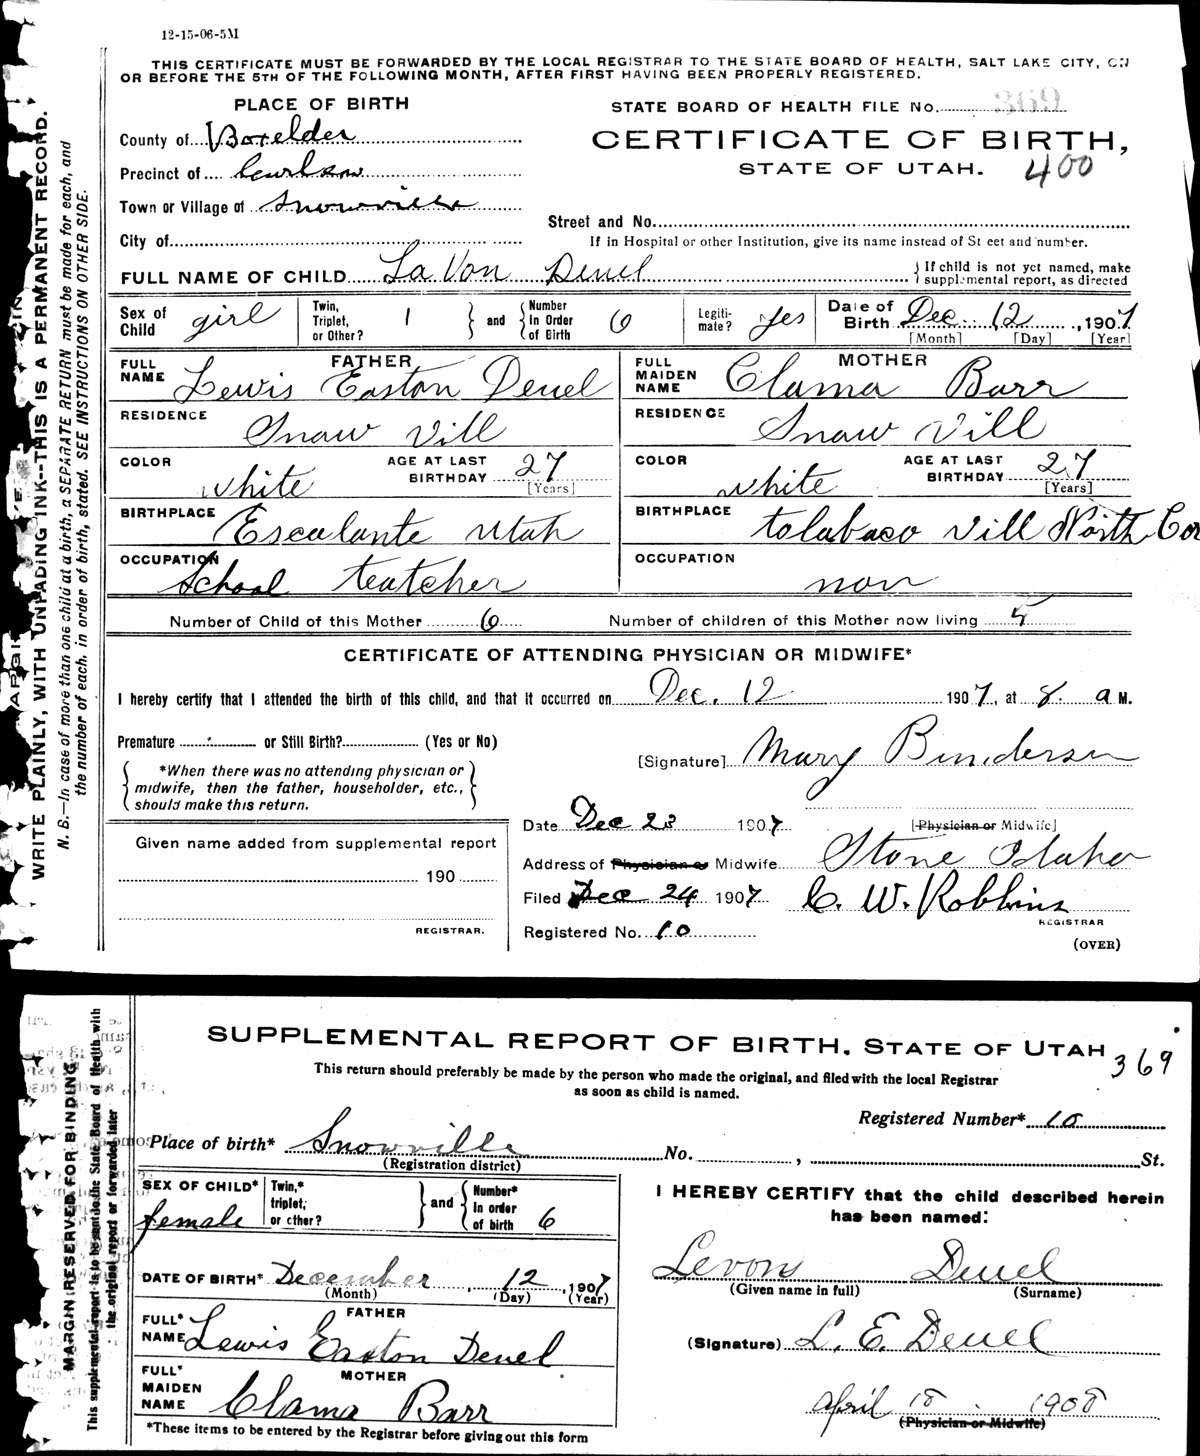 12-15-06-5M
THIS CERTIFICATE MUST BE FORWARDED BY THE LOCAL REGISTRAR TO THE STATE BOARD OF HEALTH, SALT LAKE CITY, ON
OR BEFORE THE 5TH OF THE FOLLOWING MONTH, AFTER FIRST HAVING BEEN PROPERLY REGISTERED.
PLACE OF BIRTH
STATE BOARD OF HEALTH FILE No. 369
County of Boxelder
CERTIFICATE OF BIRTH,
Precinct of
STATE OF UTAH. 400
Town or Village of Snowville
Street and No.
City of
If in Hospital or other Institution, give its name instead of St eet and number.
FULL NAME OF CHILD La Von Deuel
} If child is not yet named, make
supplemental report, as directed
Sex of Child girl
Twin, Triplet, or Other? 1 } and { Number In Order of Birth 6
Legiti-mate? yes
Date of Birth Dec 12, 1907
[Month] [Day] [Year]
FATHER
FULL NAME Lewis Easton Deuel
RESIDENCE Snaw Vill
COLOR white
AGE AT LAST BIRTHDAY 27
[Years]
BIRTHPLACE Escalante Utah
OCCUPATION School teatcher
MOTHER
FULL MAIDEN NAME Clama Barr
RESIDENCE Snaw Vill
COLOR white
AGE AT LAST BIRTHDAY 27
[Years]
BIRTHPLACE tolabaco Vill North Cor
OCCUPATION non
Number of Child of this Mother 6 Number of children of this Mother now living 5
CERTIFICATE OF ATTENDING PHYSICIAN OR MIDWIFE*
I hereby certify that I attended the birth of this child, and that it occurred on Dec. 12 1907, at 8. a M.
Premature or Still Birth? (Yes or No)
[Signature] Mary
*When there was no attending physician or
midwife, then the father, householder, etc.,
should make this return.
Date Dec 23 1907
[Physician or Midwife]
Given name added from supplemental report
190
REGISTRAR.
Address of Physician or Midwife Stone Idaho
Filed Dec 24 1907 C. W. Robbins
REGISTRAR
Registered No. 10
(OVER)
WRITE PLAINLY, WITH UNFADING INK--THIS IS A PERMANENT RECORD.
N. B.—In case of more than one child at a birth, a SEPARATE RETURN must be made for each, and
the number of each, in order of birth, stated. SEE INSTRUCTIONS ON OTHER SIDE.
SUPPLEMENTAL REPORT OF BIRTH, STATE OF UTAH 369
This return should preferably be made by the person who made the original, and filed with the local Registrar
as soon as child is named.
Registered Number* 10
Place of birth* Snowville No. , St.
(Registration district)
SEX OF CHILD* female
Twin,* triplet, or other? } and { Number* In order of birth 6
DATE OF BIRTH* December 12, 1907
(Month) (Day) (Year)
FATHER
FULL* NAME Lewis Easton Deuel
MOTHER
FULL* MAIDEN NAME Clama Barr
*These items to be entered by the Registrar before giving out this form
I HEREBY CERTIFY that the child described herein
has been named:
Levon Deuel
(Given name in full) (Surname)
(Signature) L. E. Deuel
April 18 1908
(Physician or Midwife)
MARGIN RESERVED FOR BINDING.
This supplemental report is to be sent to the State Board of Health with
the original report or forwarded later